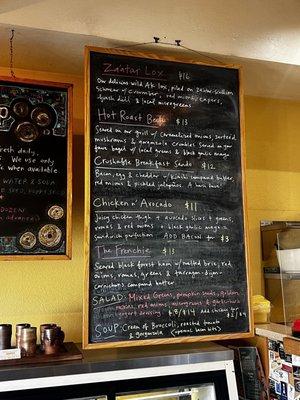 Za'atar Lox $16
Our delicious wild Atk lox, piled on Za'atar-sullion
schmear w/ cucumber, red onions, capers,
fresh dill & local microgreens
Hot Roast Beef $13
Seared on our grill w/ caramelized onions, sautéed
mushrooms & gorgonzola crumbles served on your
fave bagel w/ local greens & black garlic mayo
Crushable Breakfast Sando $12
Bacon, egg & cheddar w/ compound butter,
red onions & pickled jalapeños.
Chicken n' Avocado $11
Juicy chicken thigh + avocado slices & greens,
romas & red onions + black garlic mayo.
sandwich perfection ADD BACON for $3
The Frenchie $11
Seared black forest ham w/ melted brie, red
onions, romas, greens & tarragon-dijon-
cornichons compound butter
SALAD: Mixed Greens, pumpkin seeds,
red onions, microgreens & garlic
yogurt dressing $8/$14 Add chicken for $
SOUP: Cream of Broccoli, roasted tomato
& gorgonzola (optional bacon bits)
fresh daily,
We use only
WATER & SODA
DOZEN!